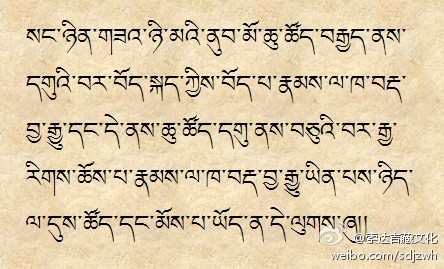 སང་ཉིན་གཟའ་ཉི་མའི་ནུབ་མོ་ཆུ་ཚོད་བརྒྱད་ནས་
དགུའི་བར་བོད་སྐད་ཀྱིས་བོད་པ་རྣམས་ལ་ཁ་བརྡ་
བྱ་རྒྱུ་དང་དེ་ནས་ཆུ་ཚོད་དགུ་ནས་བཅུའི་བར་རྒྱ་
རིགས་ཆོས་པ་རྣམས་ལ་ཁ་བརྡ་བྱ་རྒྱུ་ཡིན་པས་ཉིད་
ལ་དུས་ཚོད་དང་མོས་པ་ཡོད་ན་དེ་ལུགས་ཞུ།།
@索达吉藏文化
weibo.com/sdjzwh